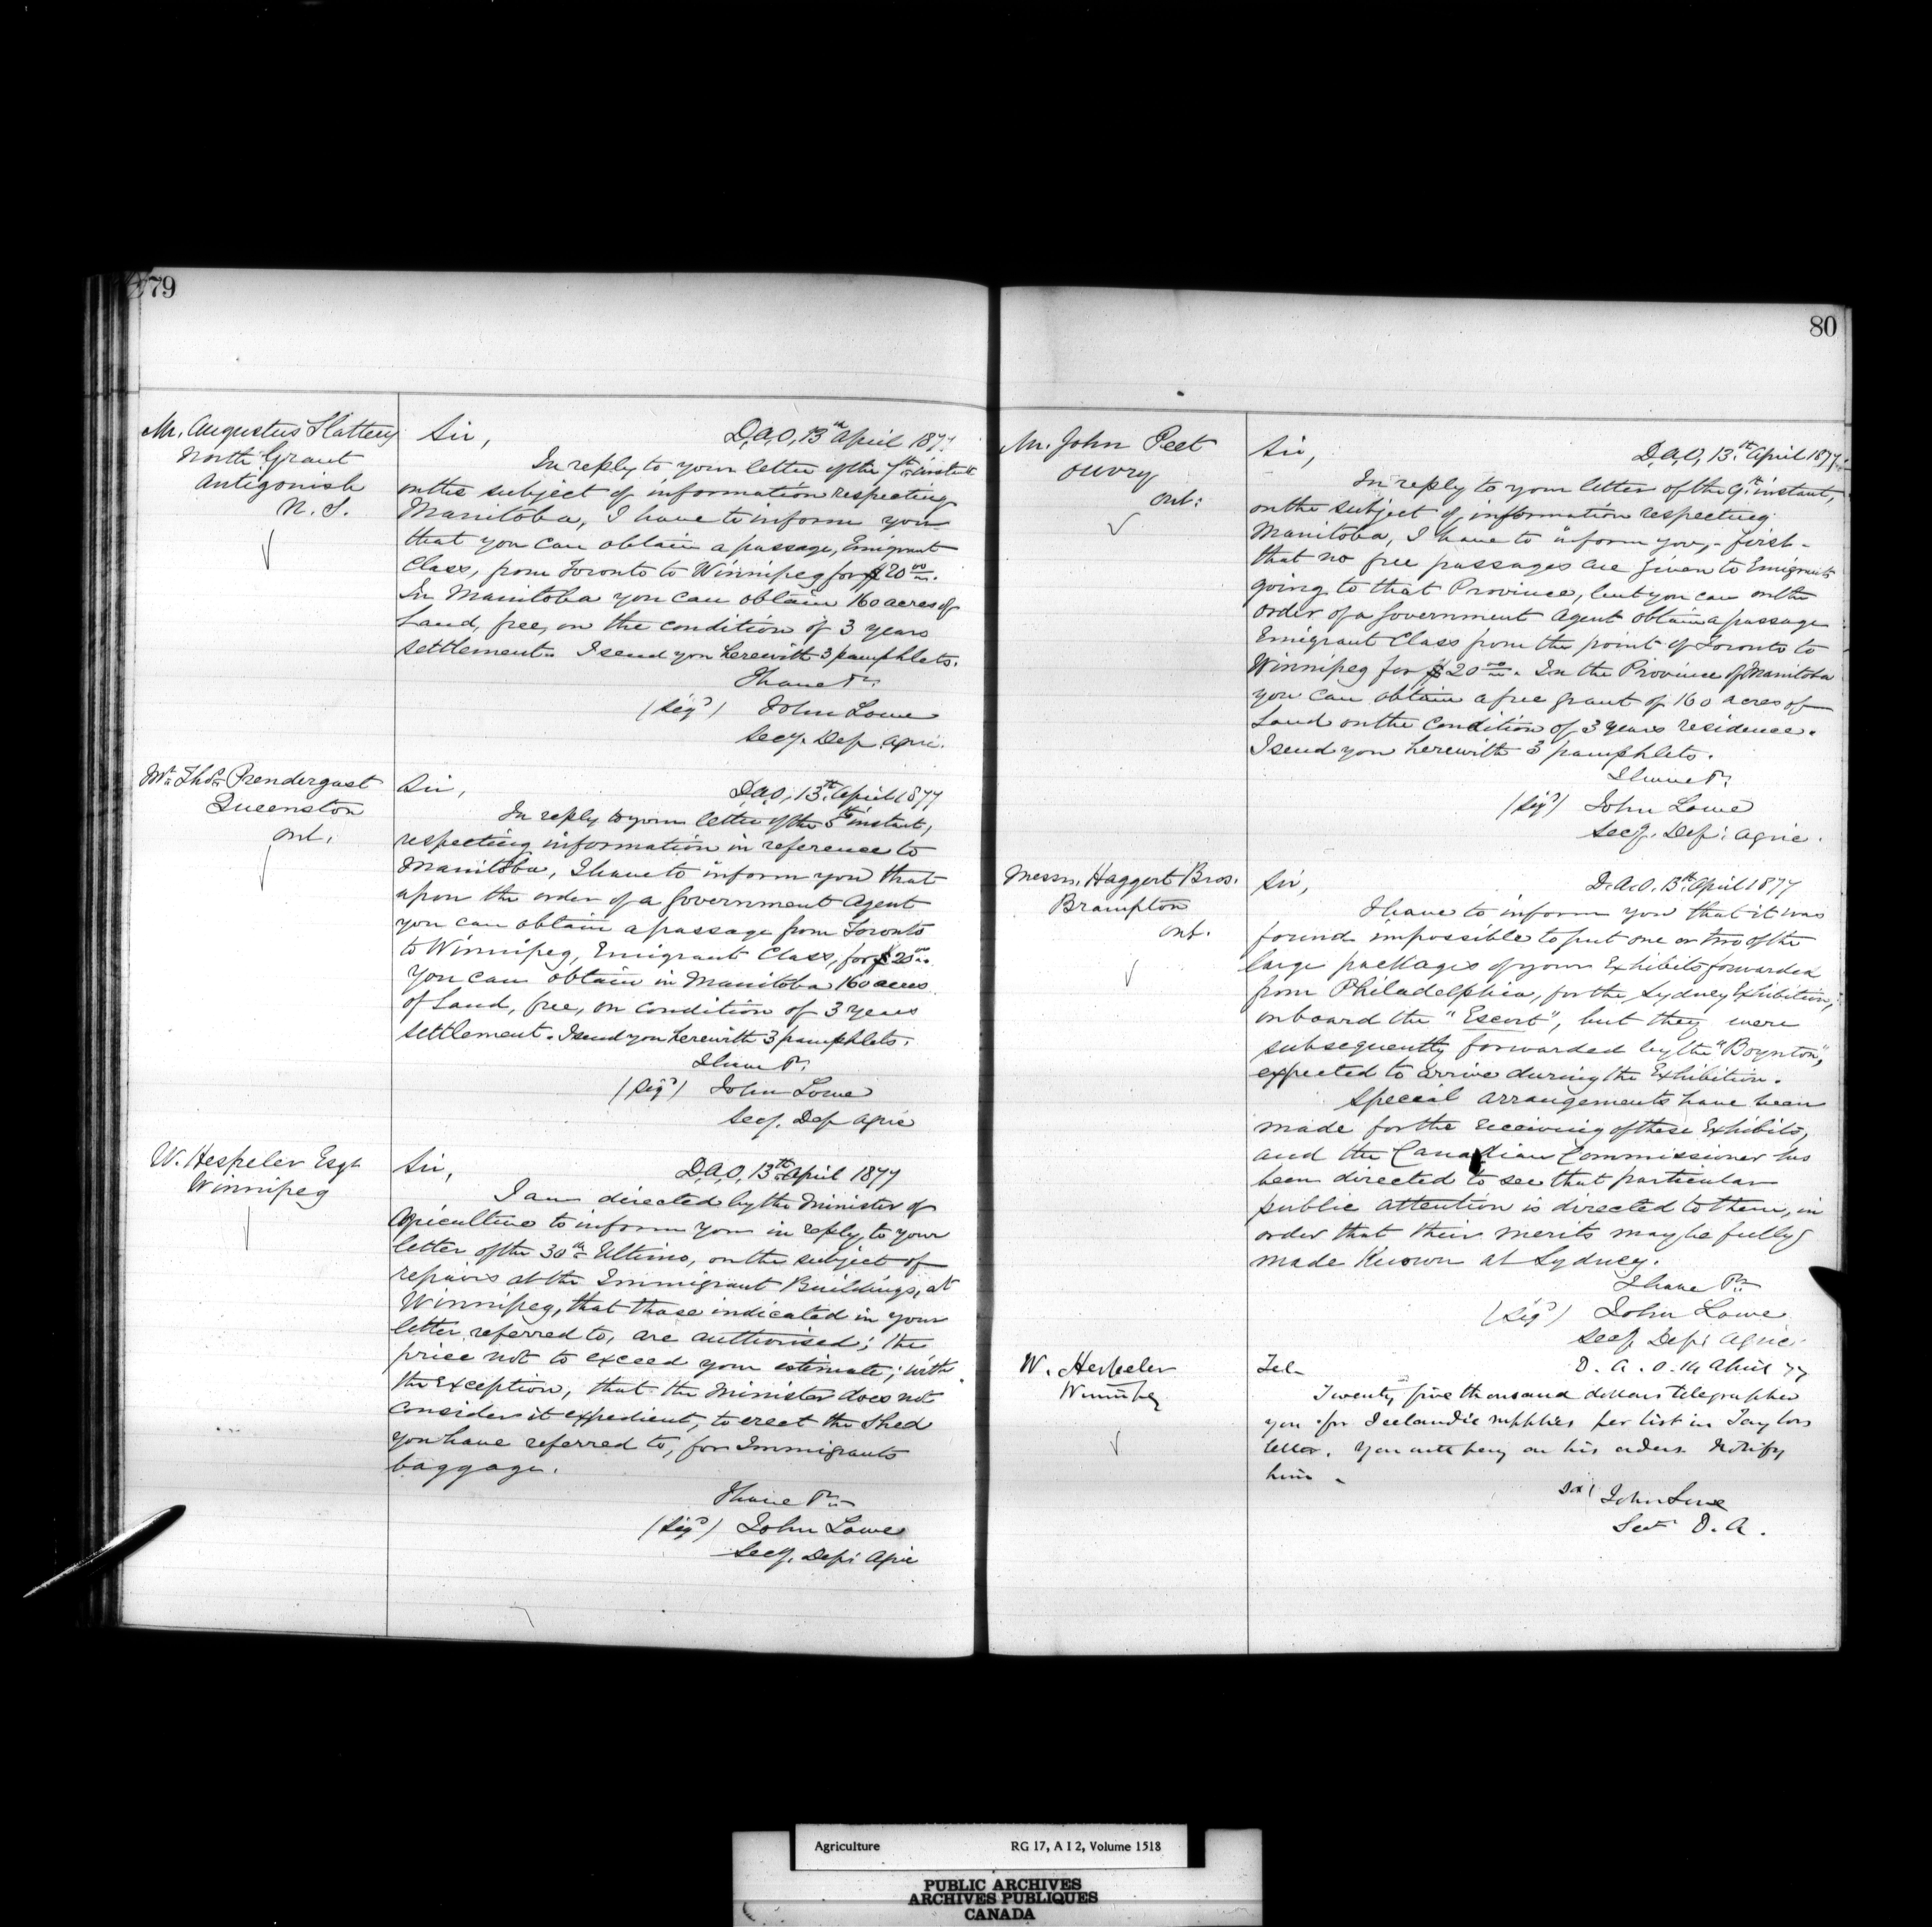 79
Mr. Augustus Slattery
North Grant
Antigonish
N. S.
Sir,
D,A,O, 13th April 1877
In reply to your letter of the 7th instant
on the subject of information respecting
Manitoba, I have to inform you
that you can obtain a passage, Emigrant
Class, from Toronto to Winnipeg for $20 00.
In Manitoba you can obtain 160 acres of
Land, free, on the condition of 3 years
settlement. I send you herewith 3 pamphlets.
I have &c.
(Sigd) John Lowe
Secy. Dep. Agric.
Mr. Thos. Prendergast
Queenston
Ont.
Sir,
D,A,O, 13th April 1877
In reply to your letter of the 5th instant,
respecting information in reference to
Manitoba, I have to inform you that
upon the order of a Government Agent
you can obtain a passage from Toronto
to Winnipeg, Emigrant Class, for $20 00.
You can obtain in Manitoba 160 acres
of Land, free, on condition of 3 years
settlement. I send you herewith 3 pamphlets.
I have &c.
(Sigd) John Lowe
Secy. Dep Agric
W. Hespeler Esqr
Winnipeg
Sir,
D,A,O, 13th April 1877
I am directed by the Minister of
Agriculture to inform you in reply to your
letter of the 30th Ultimo, on the subject of
repairs at the Immigrant Buildings, at
Winnipeg, that those indicated in your
letter referred to, are authorised; the
price not to exceed your estimate; with
the exception, that the Minister does not
consider it expedient, to erect the Shed
you have referred to, for Immigrants
baggage.
I have &c.
(Sigd) John Lowe
Secy. Dep: Agric
80
Mr. John Peet
Ouvry
Ont:
Sir,
D,A,O, 13th April 1877
In reply to your letter of the 9th instant,
on the subject of information respecting
Manitoba, I have to inform you, - first -
that no free passages are given to Emigrants
going to that Province, but you can on the
order of a Government Agent obtain a passage
Emigrant Class from the point of Toronto to
Winnipeg for $20 00. In the Province of Manitoba
you can obtain a free grant of 160 acres of
Land on the condition of 3 years residence.
I send you herewith 3 pamphlets.
I have &c.
(Sigd) John Lowe
Secy. Dep: Agric.
Messrs. Haggert Bros.
Brampton
Ont.
Sir,
D.A.O. 13th April 1877
I have to inform you that it was
found impossible to put one or two of the
large packages of your Exhibits forwarded
from Philadelphia, for the Sydney Exhibition,
onboard the "Escort", but they were
subsequently forwarded by the "Boynton",
expected to arrive during the Exhibition.
Special arrangements have been
made for the receiving of these Exhibits,
and the Canadian Commissioner has
been directed to see that particular
public attention is directed to them, in
order that their merits may be fully
made known at Sydney.
I have &c.
(Sigd) John Lowe
Secy Dep: Agric.
W. Hespeler
Winnipeg
Tel-
D. A. O. 14 April 77
Twenty five thousand dollars telegraphed
you for Icelandic supplies per list in Taylors
letter. You will pay on his orders. Notify
him -
John Lowe
Sec D. A.
Agriculture RG 17, A I 2, Volume 1518
PUBLIC ARCHIVES
ARCHIVES PUBLIQUES
CANADA